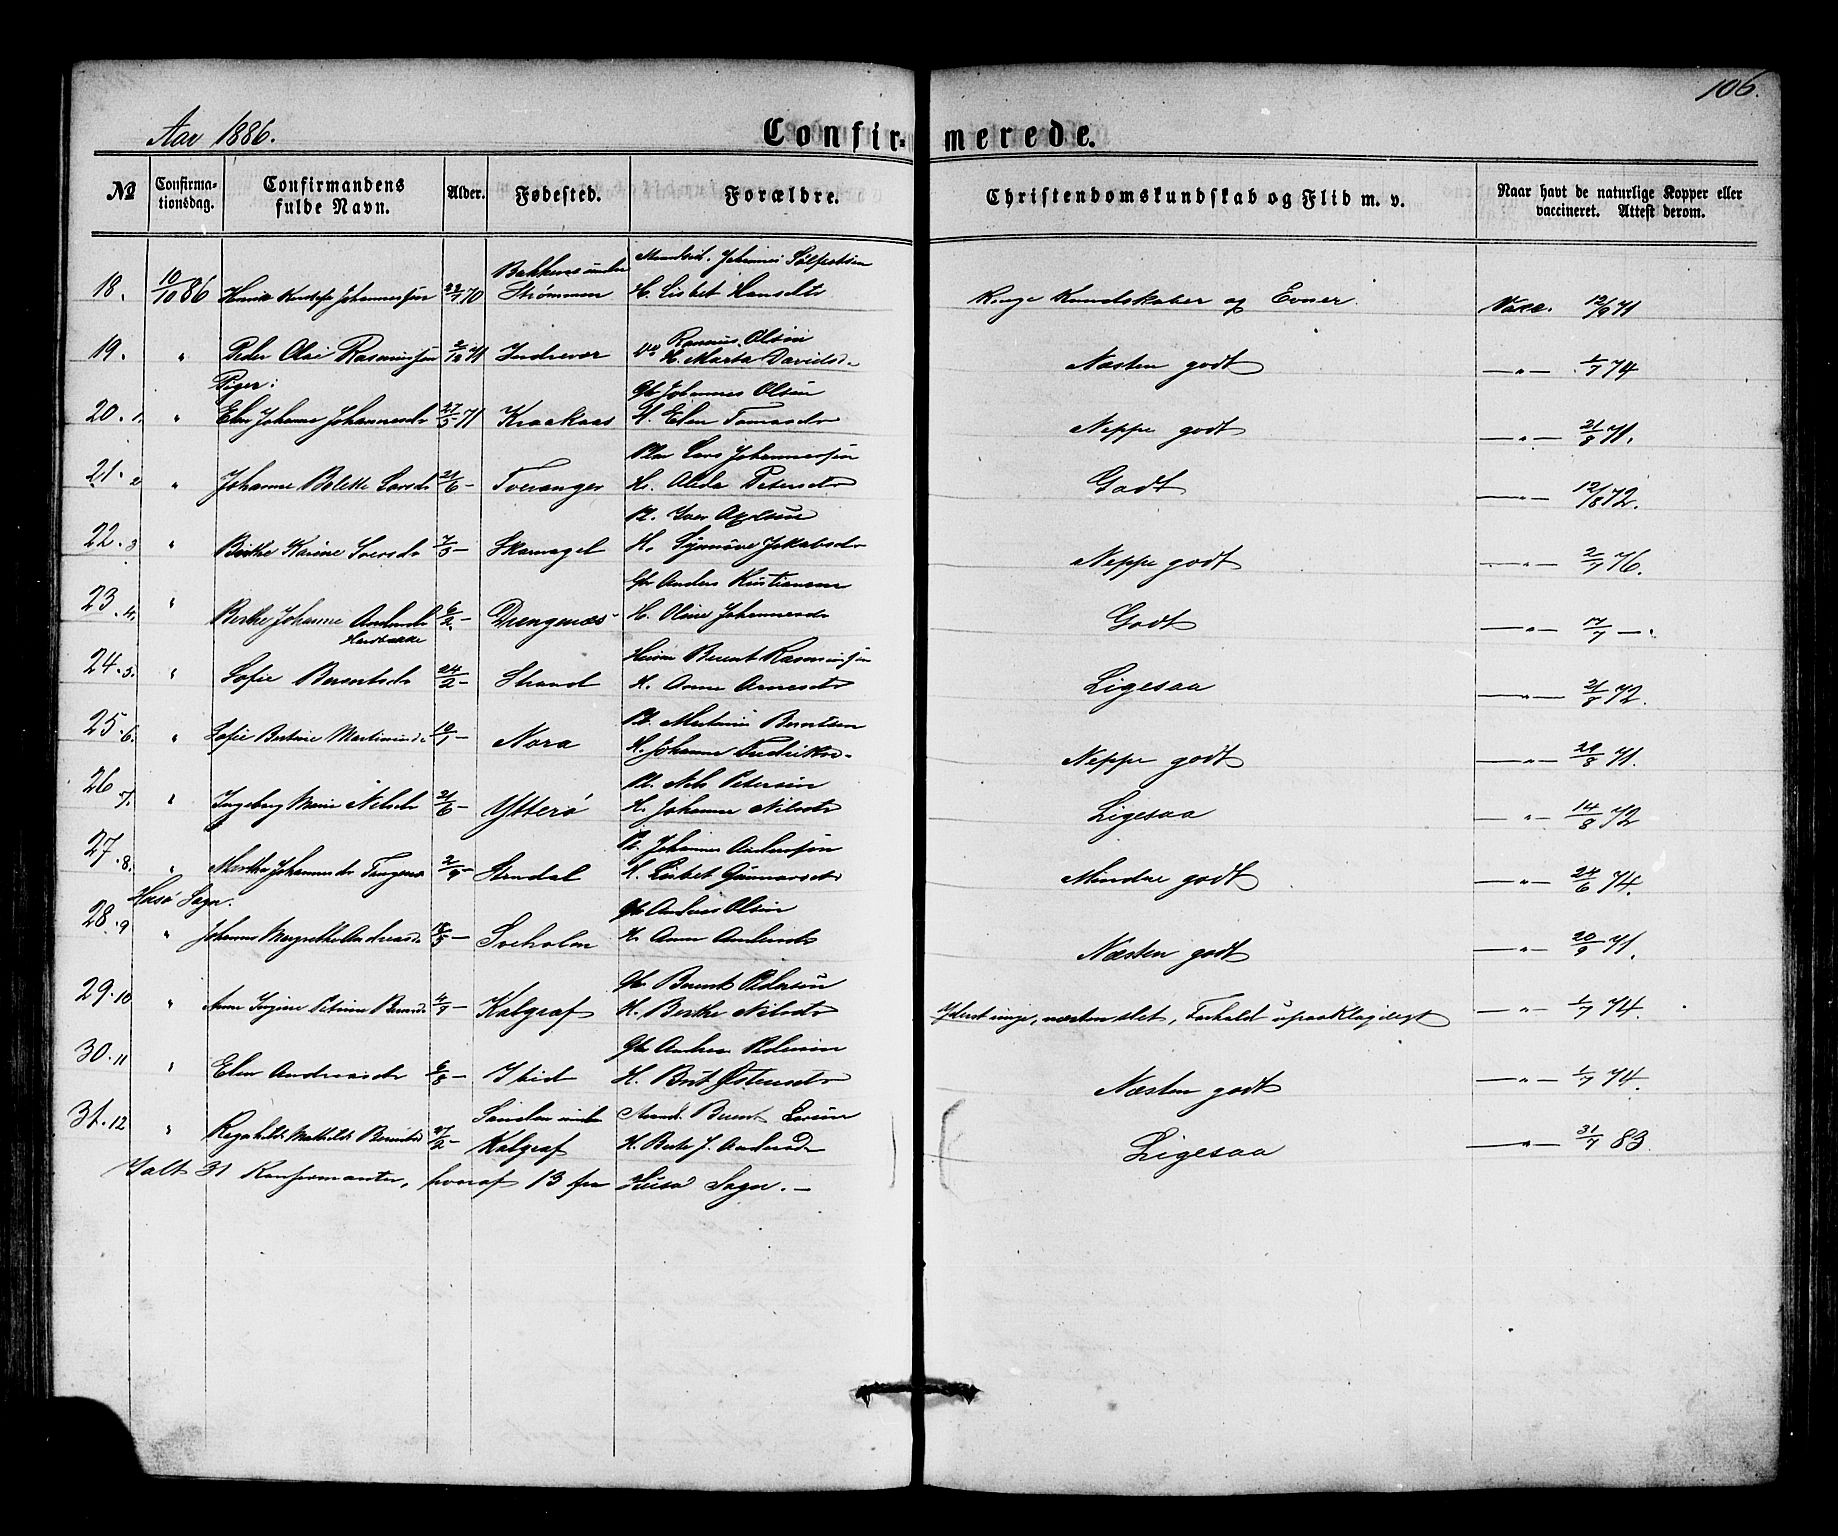 106.
Aar 1886.
Confirmerede.
No
Confirmationsdag.
Confirmandens fulde Navn.
Alder.
Fødested.
Forældre.
Christendomskundskab og Flid m. v.
Naar havt de naturlige Kopper eller vaccineret. Attest derom.
18. 10/10 86 Johannessen 70 Bakkene under Strømmen Johannes H. Lisbet Hansdtr Ringe Kundskaber og Evner. Vacc. 12/9 71
19. " Peder Olai Rasmussen 2/10 71 Indrevær Rasmus Olsen H. Marta Davidsd. Næsten godt —"— 1/7 74
Piger:
20. 1. " Elen Johanne Johannesdr 27/5 71 Kraakaas Gbr Johannes Olsen H. Elen Tomasdr Neppe godt —"— 21/8 71.
21. 2 " Johanne Bolette Larsdr 21/6 — Tveranger Lars Johannessen H. Alida Petersdr Godt —"— 12/8 72.
22. 3 " Birthe Karine Iversdr 7/3 — Skarvagel Pl. Iver Axelsen H. Synnøve Jakobsdr Neppe godt —"— 2/7 76.
23. 4. " Berthe Johanne Andersdr Hardbakke 6/2 — Drengenæs Gbr Anders Kristiansen H. Oline Johannesdr Godt —"— 17/7 —.
24. 5. " Sofie Berentsdr 24/2 — Strand Berent Rasmussen H. Anne Arnesdr Ligesaa —"— 21/8 72.
25. 6. " Sofie Bertine Martinusd. 10/1 — Nora Pl. Martinus Berntsen H. Johanne Fredriksd. Neppe godt —"— 21/8 71.
26 7. " Ingeborg Marie Nilsdr 21/6 — Ytterø Pl. Nils Petersen H. Johanne Nilsdr Ligesaa —"— 14/8 72
27. 8. " Johannesdr 2/9 — Pl. Johannes Andersen H. Lisbet Gunnarsdr Mindre godt —"— 24/6 74.
Husø Sogn.
28. 9 " Johanne Margrethe Andreasd. 18/5 — Sveholm Gbr Andreas Olsen H. Anne Andersdr Næsten godt —"— 20/9 71.
29. 10 " Anne Petrine Berentsd. 4/7 — Kalgraf Gbr Berent Pedersen H. Berthe Nilsdr Yderst ringe, næsten slet, Forhold upaaklageligt —"— 1/7 74.
30. 11 " Elen Andreasdr 6/8 — Ibid Gbr Andreas H. Brit Østensdr Næsten godt —"— 1/7 74.
31. 12 " Mathilde 27/2 — under Kalgraf Berent H. Berte J. Andersdr Ligesaa —"— 31/7 83.
Ialt 31 Konfirmanter, hvoraf 13 fra Husø Sogn. —